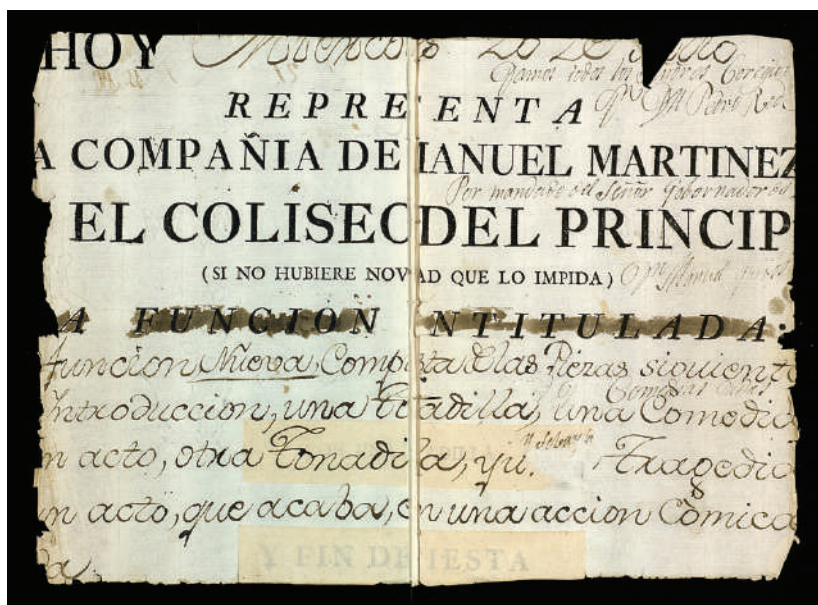 HOY Miercoles 20 de Julio
REPRESENTA
A COMPAÑIA DE MANUEL MARTINEZ
Por mandado del Señor Gobernador
EL COLISEO DEL PRINCIP
(SI NO HUBIERE NOV AD QUE LO IMPIDA)
A FUNCION NTITULADA:
funcion Nueva, Compuesta de las Piezas siguiente
Introduccion, una Tonadilla, una Comedia
n acto, otra Tonadilla, y Tragedia
n acto, que acaba, en una accion Còmica
da.
Y FIN DE IESTA